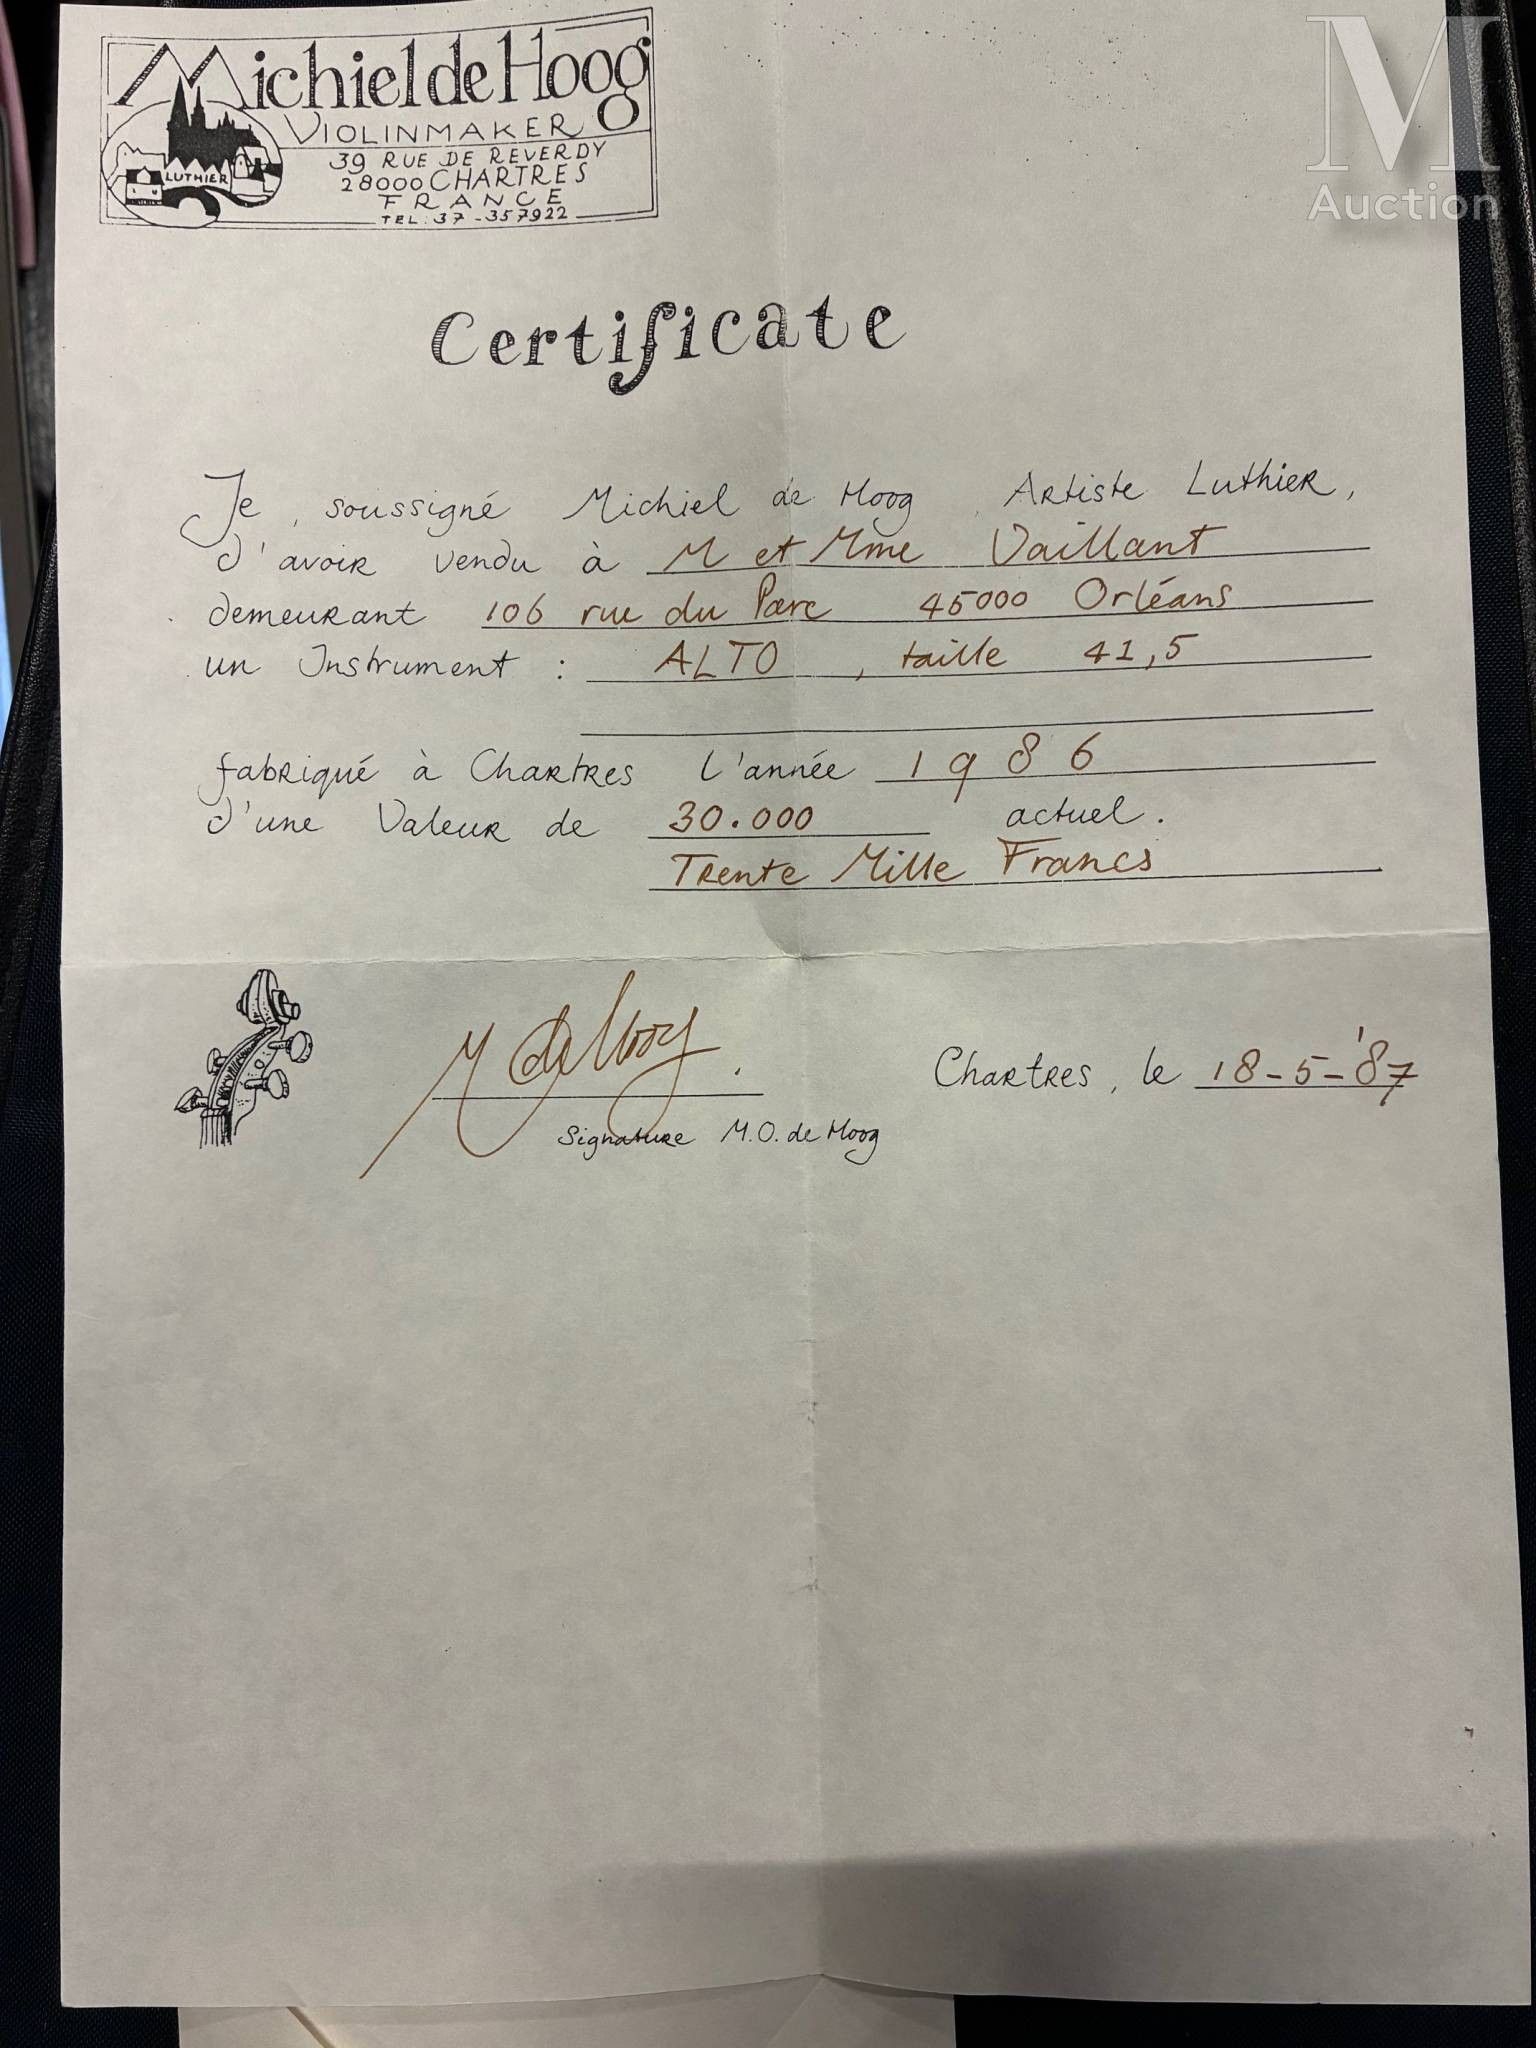 Michiel de Hoog
VIOLINMAKER
39 RUE DE REVERDY
28000 CHARTRES
FRANCE
TEL: 37-357922
LUTHIER
M
Auction
Certificate
Je, soussigné Michiel de Hoog, Artiste Luthier,
d'avoir vendu à M et Mme Vaillant
demeurant 106 rue du Parc 45000 Orléans
un Instrument : ALTO, taille 41,5
fabriqué à Chartres l'année 1986
d'une Valeur de 30.000 actuel.
Trente Mille Francs
M de Hoog
Chartres, le 18-5-'87
Signature M.O. de Hoog